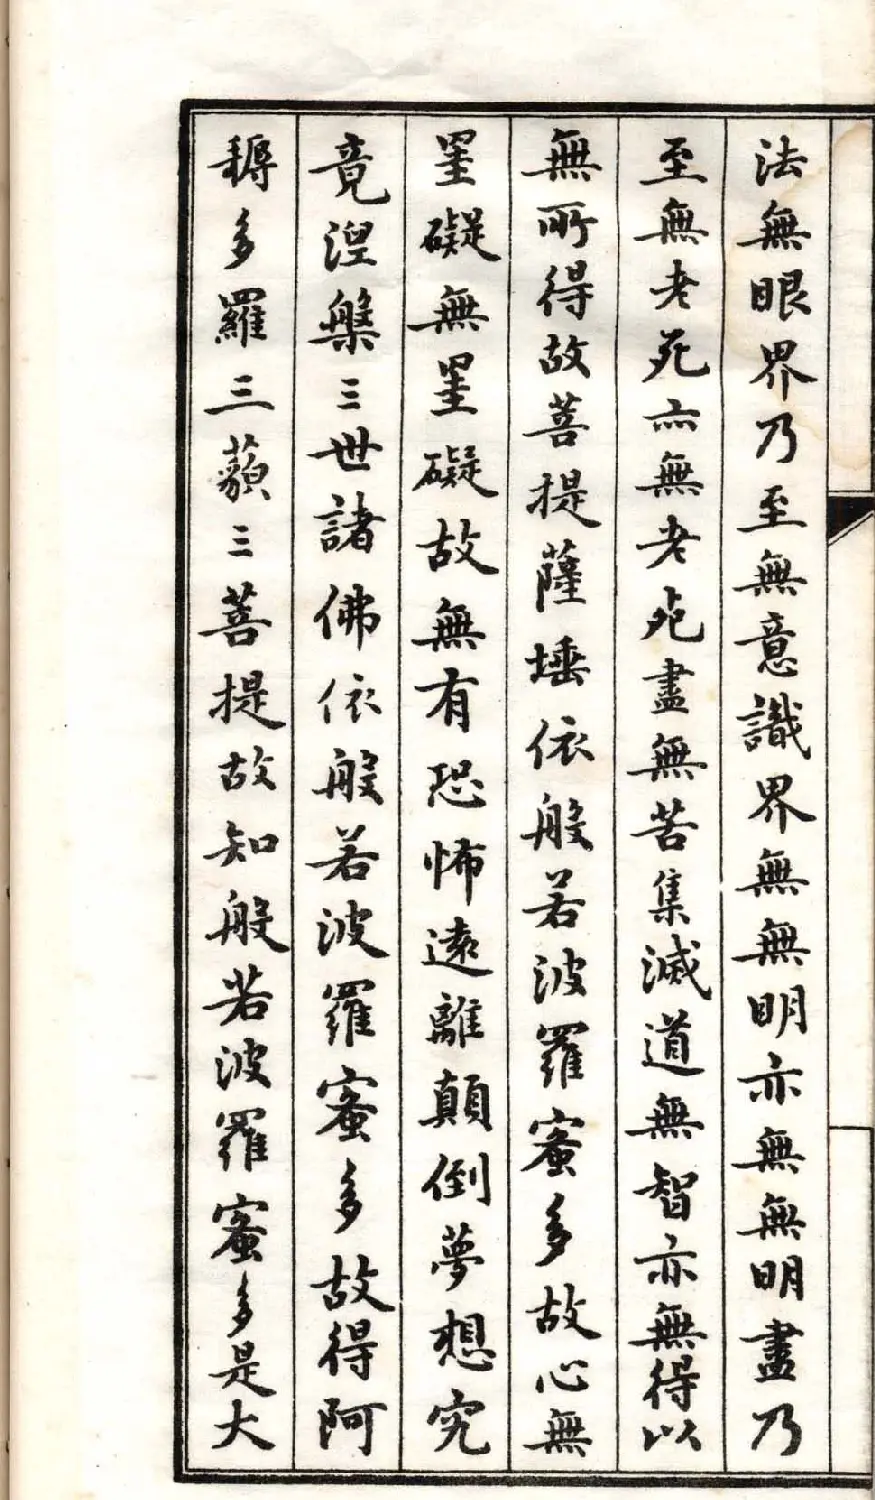 法無眼界乃至無意識界無無明亦無無明盡乃
至無老死亦無老死盡無苦集滅道無智亦無得以
無所得故菩提薩埵依般若波羅蜜多故心無
罣礙無罣礙故無有恐怖遠離顛倒夢想究
竟涅槃三世諸佛依般若波羅蜜多故得阿
耨多羅三藐三菩提故知般若波羅蜜多是大